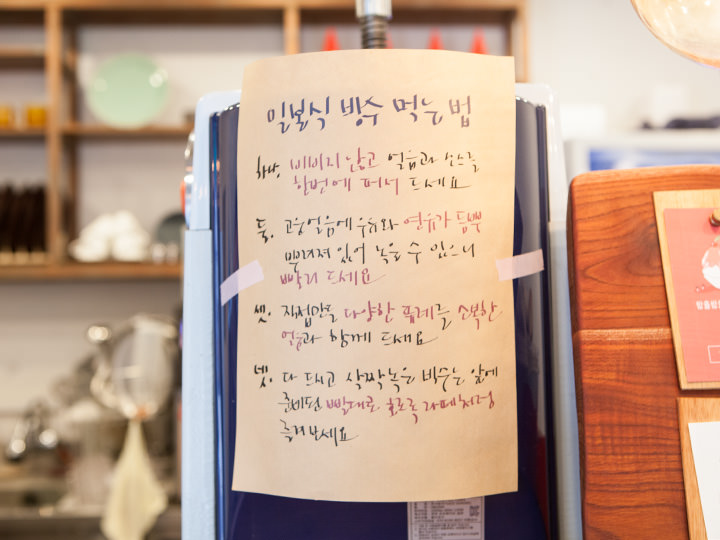 일본식 빙수 먹는 법
하나, 비비지 않고 얼음과 소스를
한번에 퍼서 드세요
둘, 고운얼음에 우유와 연유가 듬뿍
뿌려져 있어 녹을 수 있으니
빨리 드세요
셋, 직접만든 다양한 퓨레를 소복한
얼음과 함께 드세요
넷, 다 드시고 살짝 녹은 빙수는 앞에
준비된 빨대로 호로록 라떼처럼
즐겨보세요